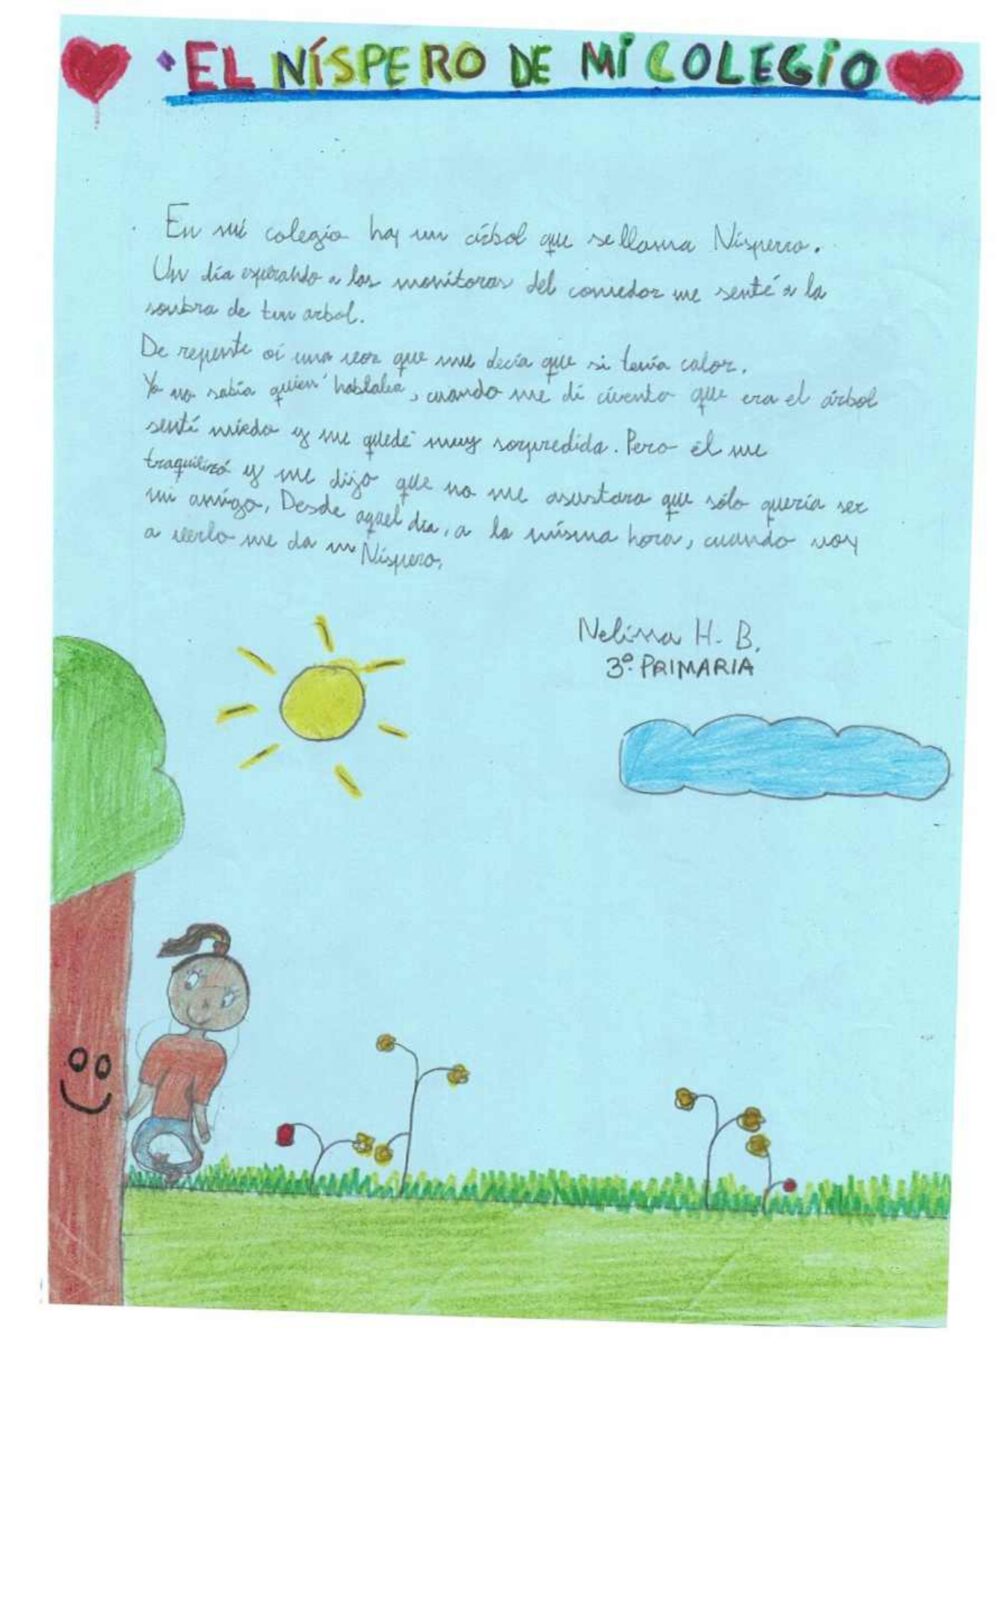 EL NÍSPERO DE MI COLEGIO
En mi colegio hay un árbol que se llama Níspero.
Un día esperando a las monitoras del comedor me senté a la
sombra de un arbol.
De repente oí una voz que me decía que si tenía calor.
Yo no sabía quien hablaba, cuando me di cuenta que era el árbol
sentí miedo y me quedé muy sorpredida. Pero él me
traquilizó y me dijo que no me asustara que sólo quería ser
mi amigo. Desde aquel día, a la misma hora, cuando voy
a verlo me da un Níspero.
Nelissa H. B.
3º PRIMARIA